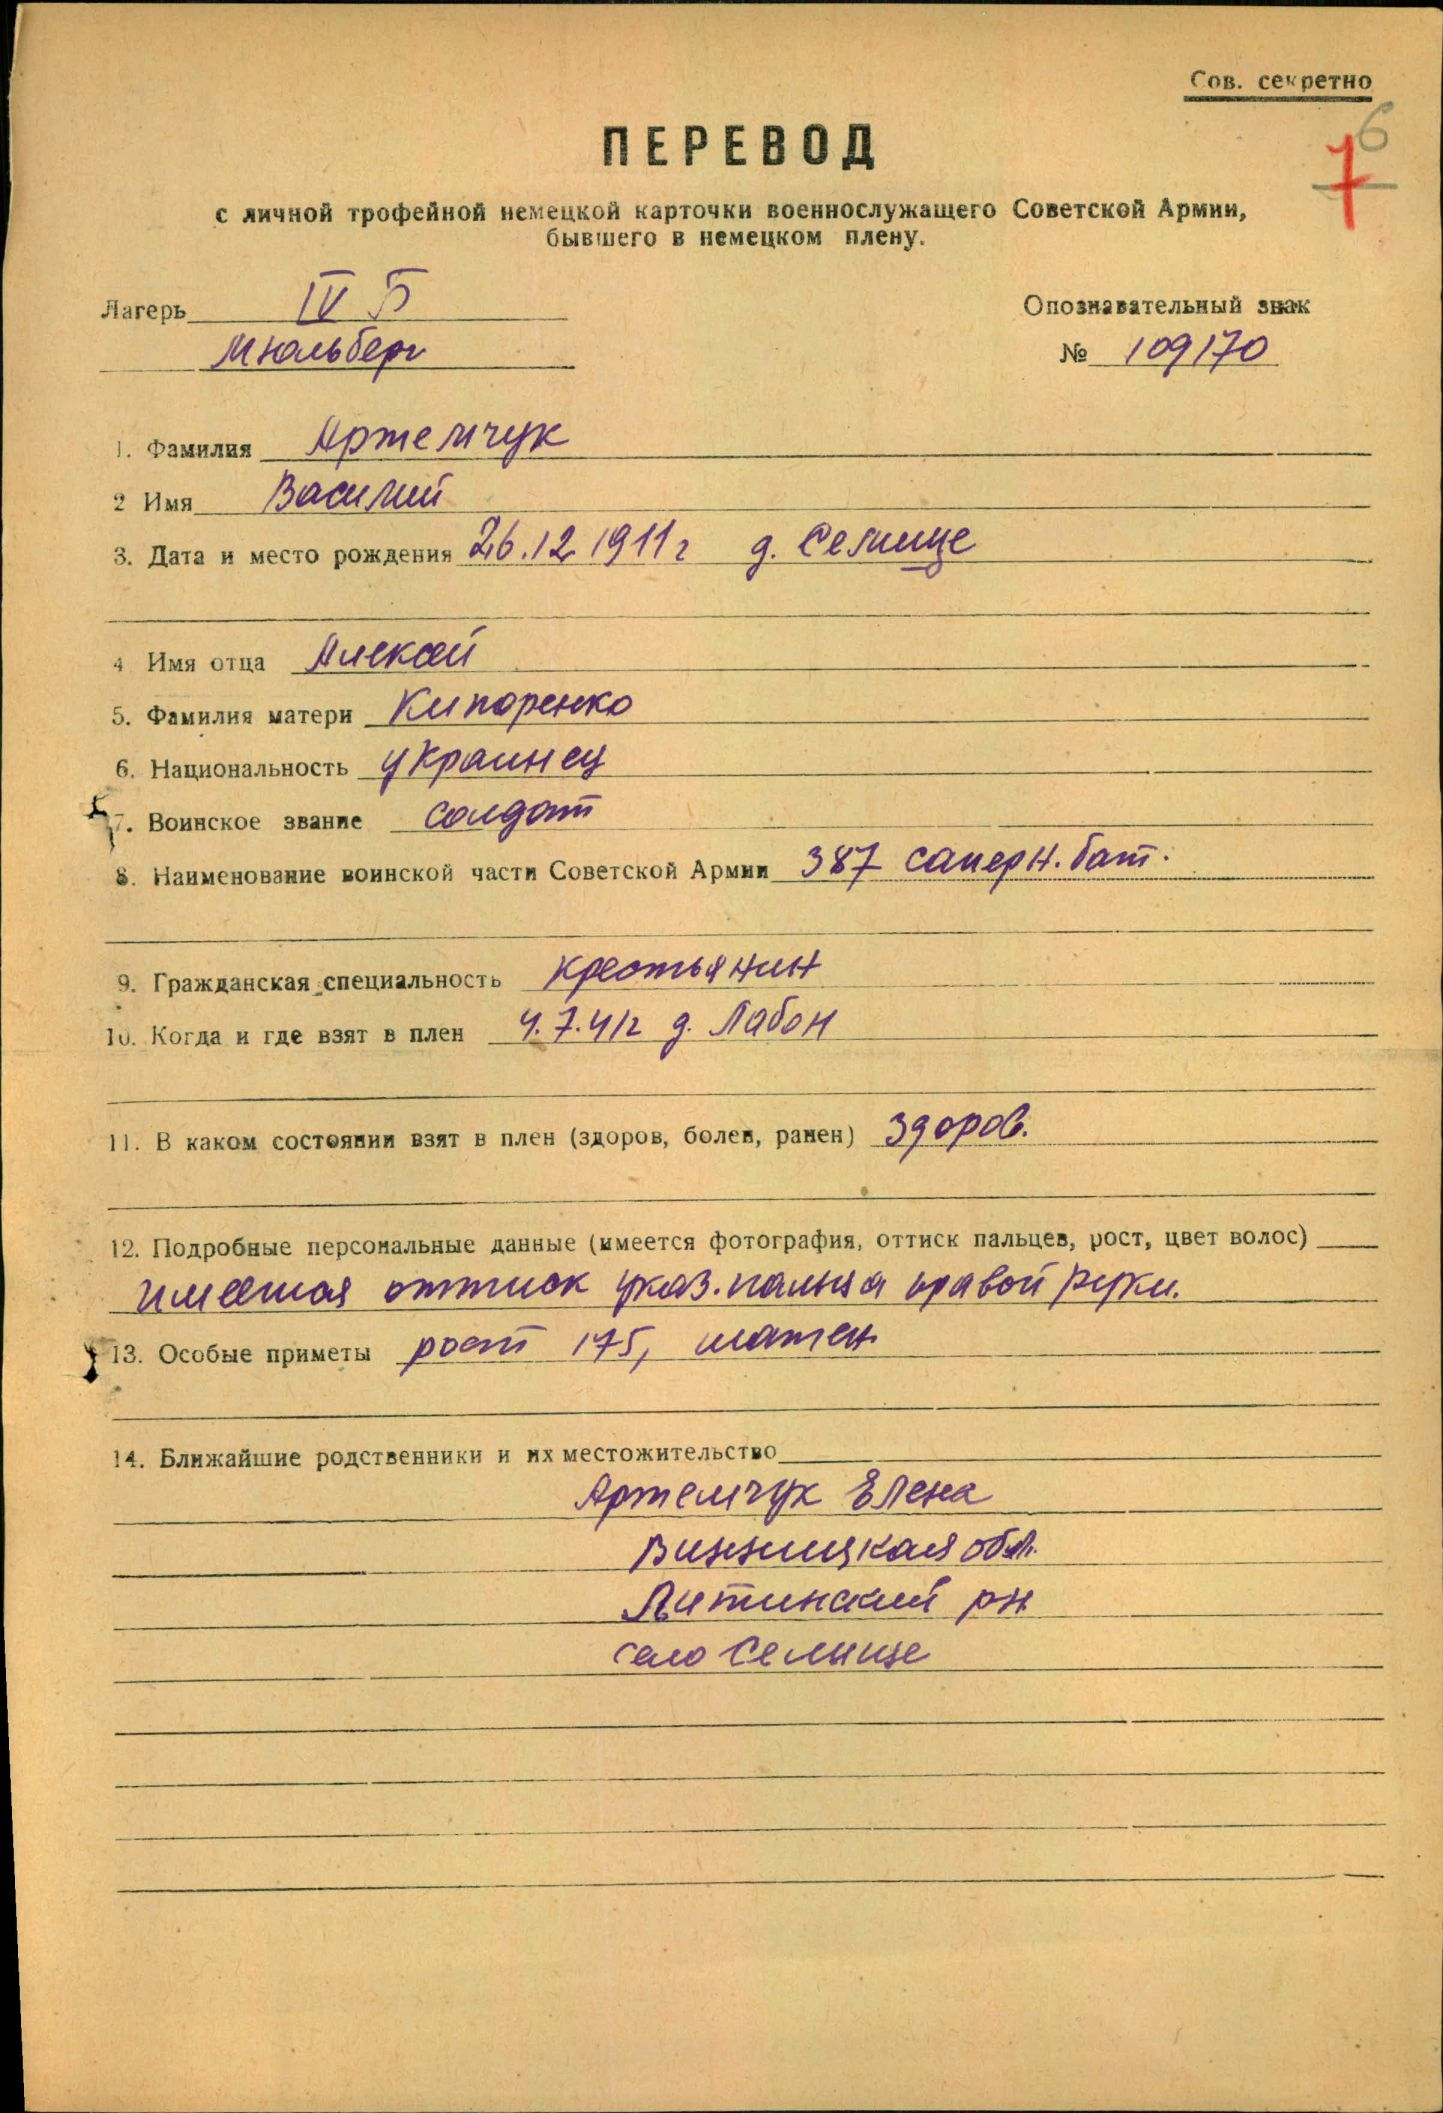 Сов. секретно
6
7
ПЕРЕВОД
с личной трофейной немецкой карточки военнослужащего Советской Армии,
бывшего в немецком плену.
Лагерь IV Б
Мюльберг
Опознавательный знак
№ 109170
1. Фамилия Артемчук
2 Имя Василий
3. Дата и место рождения 26.12.1911г д. Селище
4 Имя отца Алексей
5. Фамилия матери Кипоренко
6. Национальность украинец
7. Воинское звание солдат
8. Наименование воинской части Советской Армии 387 саперн. бат.
9. Гражданская специальность крестьянин
10. Когда и где взят в плен 4.7.41г д. Лабон
11. В каком состоянии взят в плен (здоров, болен, ранен) здоров.
12. Подробные персональные данные (имеется фотография, оттиск пальцев, рост, цвет волос)
имеется оттиск указ. пальца правой руки.
13. Особые приметы рост 175, шатен
14. Ближайшие родственники и их местожительство
Артемчук Елена
Винницкая обл.
Литинский рн
село Селище